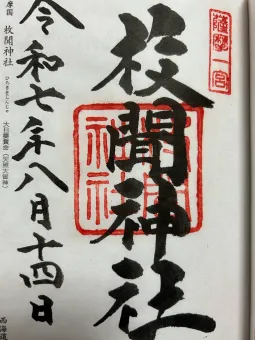 薩摩一宮
枚聞神社
令和七年八月十四日
摩国 枚聞神社
ひらききじんじゃ
大日孁貴命(天照大御神)
西海道